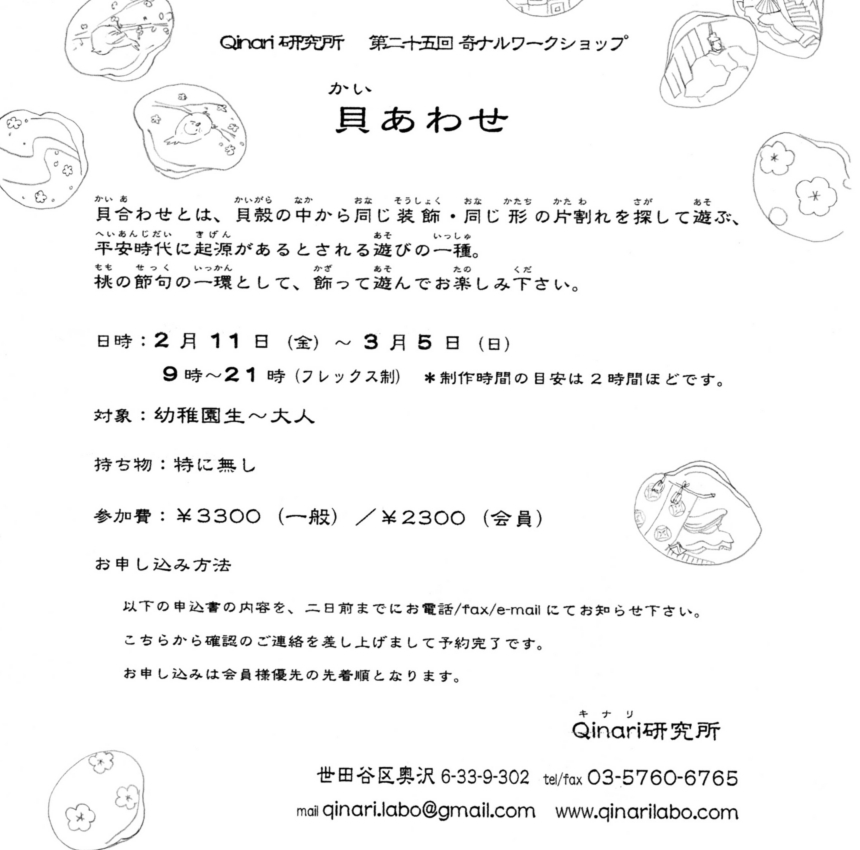 Qinari 研究所 第二十五回 奇ナルワークショップ
かい
貝あわせ
かい あ かいがら なか おな そうしょく おな かたち かた わ さが あそ
貝合わせとは、貝殻の中から同じ装飾・同じ形の片割れを探して遊ぶ、
へいあんじだい きげん あそ いっしゅ
平安時代に起源があるとされる遊びの一種。
もも せっく いっかん かざ あそ たの くだ
桃の節句の一環として、飾って遊んでお楽しみ下さい。
日時：2月11日（金）～3月5日（日）
9時～21時（フレックス制） ＊制作時間の目安は2時間ほどです。
対象：幼稚園生～大人
持ち物：特に無し
参加費：￥3300（一般）／￥2300（会員）
お申し込み方法
以下の申込書の内容を、二日前までにお電話/fax/e-mailにてお知らせ下さい。
こちらから確認のご連絡を差し上げまして予約完了です。
お申し込みは会員様優先の先着順となります。
キナリ
Qinari研究所
世田谷区奥沢 6-33-9-302 tel/fax 03-5760-6765
mail qinari.labo@gmail.com www.qinarilabo.com